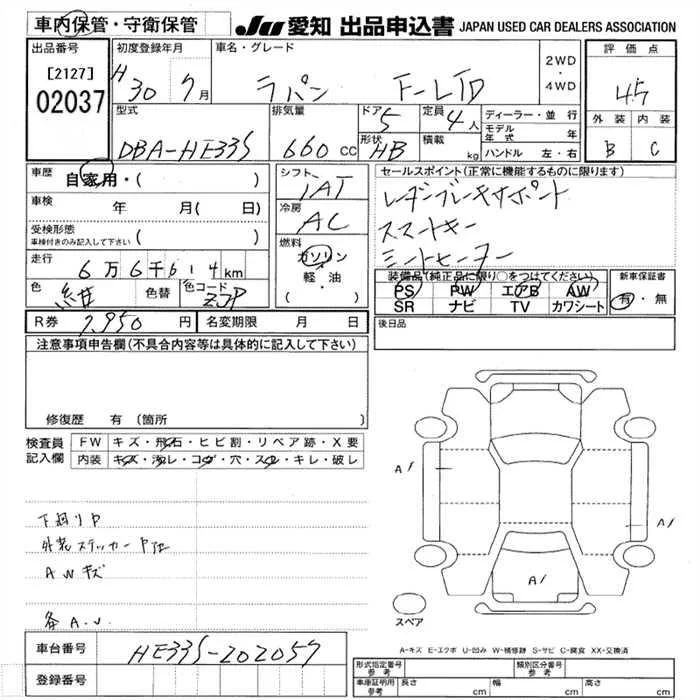 車内保管・守衛保管
JU 愛知 出品申込書 JAPAN USED CAR DEALERS ASSOCIATION
出品番号 初度登録年月 車名・グレード 2WD・4WD 評価点
[2127]
02037
H30 7月 ラパン F-LTD 4.5
外装 内装
B C
型式 排気量 ドア 定員 ディーラー・並行
DBA-HE33S 660cc 5 4人
形状 積載 モデル年式 年
HB kg ハンドル 左・右
車歴 自家用・( )
シフト
1AT
セールスポイント(正常に機能するものに限ります)
レーダーブレーキサポート
スマートキー
シートヒーター
車検 年 月( 日)
冷房
AC
受検形態
車検付きのみ記入して下さい ( )
燃料
ガソリン
軽・油
・( )
走行 6万6千614km
色 紺 色替 色コード ZJP
装備品(純正品に限り○をつけてください) 新車保証書
PS PW エアB AW 有・無
SR ナビ TV カワシート
R券 7,950円 名変期限 月 日
後日品
注意事項申告欄(不具合内容等は具体的に記入して下さい)
修復歴 有 (箇所 )
検査員記入欄
FW キズ・飛石・ヒビ割・リペア跡・X要
内装 キズ・汚れ・コゲ・穴・スレ・キレ・破レ
下廻りP
外装ステッカー
AWキズ
各A.U
A1
A1
A1
スペア
A-キズ E-エクボ U-凹み W-補修跡 S-サビ C-腐食 XX-交換済
車台番号 HE33S-202057
登録番号
形式指定番号 参考 類別区分番号 参考
車庫証明用 参考 長さ cm 幅 cm 高さ cm